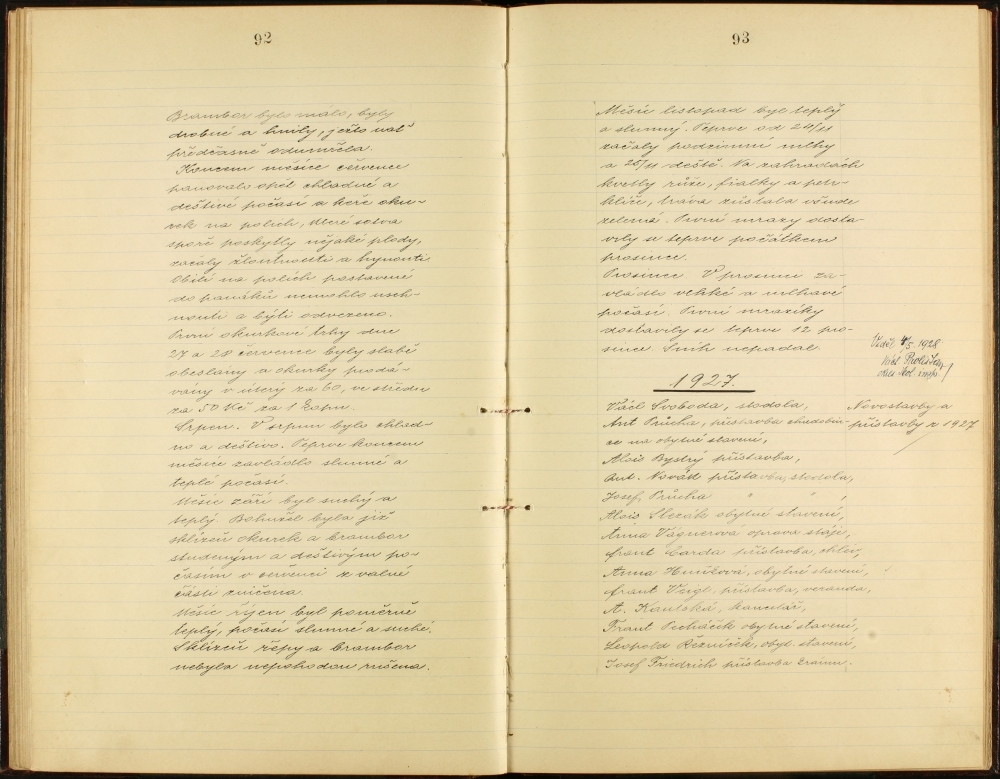 92
Brambor bylo málo, byly
drobné a hnily, ježto nať
předčasně odumřela.
Koncem měsíce července
panovalo opět chladné a
deštivé počasí a keře oku-
rek na polích, které sotva
spoře poskytly nějaké plody,
začaly žloutnouti a hynouti.
Obilí na polích postavené
do panáků nemohlo usch-
nouti a býti odvezeno.
První okurkové trhy dne
27 a 28 července byly slabě
obeslány a okurky prodá-
vány v úterý za 60, ve středu
za 50 Kč za 1 kopu.
Srpen. V srpnu bylo chlad-
no a deštivo. Teprve koncem
měsíce zavládlo slunné a
teplé počasí.
Měsíc září byl suchý a
teplý. Bohužel byla již
sklizeň okurek a brambor
studeným a deštivým po-
časím v červenci z valné
části zničena.
Měsíc říjen byl poměrně
teplý, počasí slunné a suché.
Sklizeň řepy a brambor
nebyla nepohodou rušena.
93
Měsíc listopad byl teplý
a slunný. Teprve od 24/11
začaly podzimní mlhy
a 26/11 deště. Na zahradách
kvetly růže, fialky a petr-
klíče, tráva zůstala všude
zelená. První mrazy dosta-
vily se teprve počátkem
prosince.
Prosinec. V prosinci za-
vládlo vlhké a mlhavé
počasí. První mrazíky
dostavily se teprve 12 pro-
since. Sníh nepadal.
Viděl 4/5 1928
1927.
Václ Svoboda, stodola,
Novostavby a
Ant Průcha, přístavba chudobin-
přístavby r 1927
ce na obytné stavení,
Alois Bystrý přístavba,
Ant. Novák přístavba, stodola,
Josef Průcha " " ,
Alois Slezák obytné stavení,
Anna Vágnerová oprava stáje,
Frant Čarda přístavba, chlév,
Anna Hniličová, obytné stavení,
Frant Voigl, přístavba, veranda,
A. Koutská, kancelář,
Frant Pecháček obytné stavení,
Leopold Řezníček, obyt. stavení,
Josef Friedrich přístavba